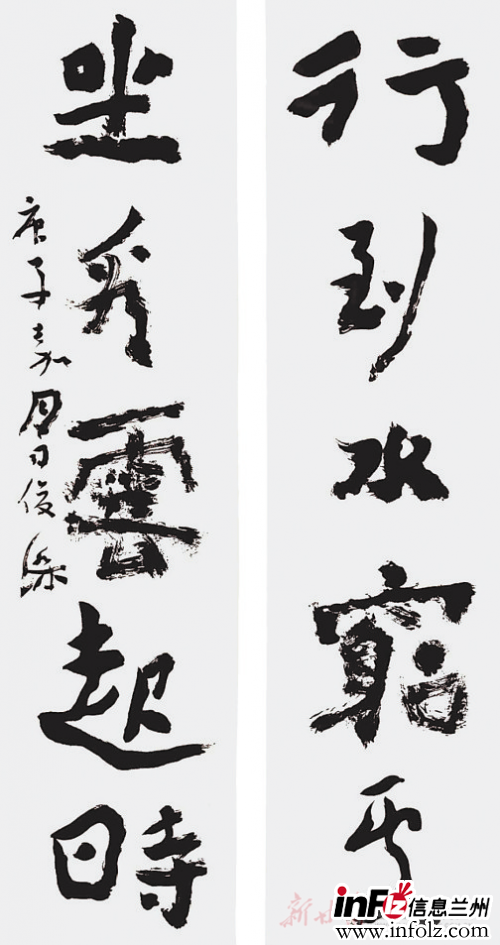 行到水窮處
坐看雲起時
庚子嘉月
俊
新
inFlz信息兰州
www.infolz.com